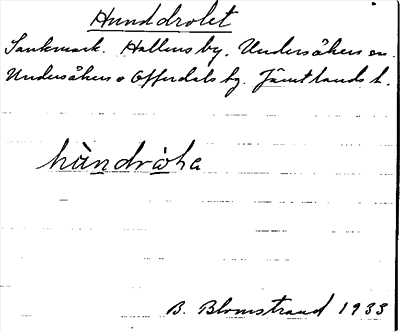 Hunddrolet
Sankmark. Hallens by. Undersåkers sn.
Undersåkers o Offerdals tg. Jämtlands l.
hùndròḥa
B. Blomstrand 1933